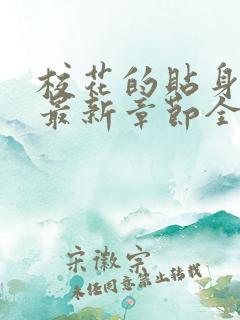 校花的贴身
最新章节全
宋徽宗
未经同意禁止转载